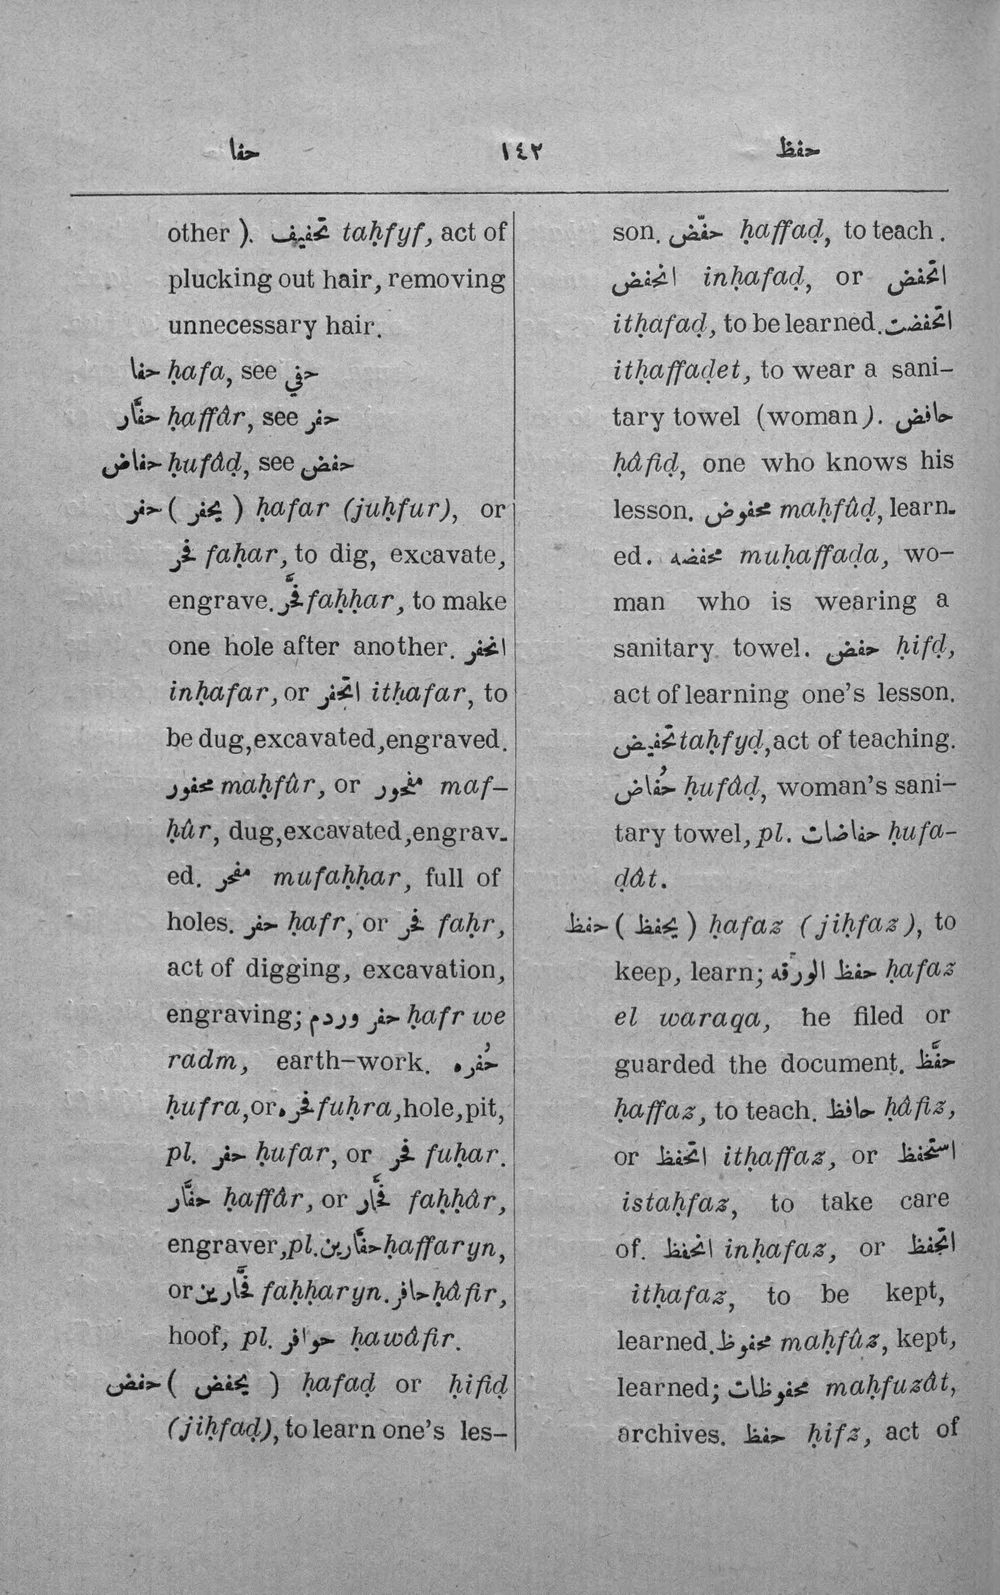 حفا ١٤٢ حفظ
other ). تحفيف taḥfyf, act of
plucking out hair, removing
unnecessary hair.
حفا ḥafa, see حفي
حفَّار ḥaffâr, see حفر
حفاض ḥufâḍ, see حفض
حفر ( يحفر ) ḥafar (juḥfur), or
فحر faḥar, to dig, excavate,
engrave. فحَّر faḥḥar, to make
one hole after another. انحفر
inḥafar, or اتحفر itḥafar, to
be dug, excavated, engraved.
محفور maḥfûr, or مفحور maf-
ḥûr, dug, excavated, engrav-
ed. مفحر mufaḥḥar, full of
holes. حفر ḥafr, or فحر faḥr,
act of digging, excavation,
engraving; حفر وردم ḥafr we
radm, earth-work. حُفره
ḥufra, or فحره fuḥra, hole, pit,
pl. حفر ḥufar, or فحر fuḥar.
حفَّار ḥaffâr, or فحَّار faḥḥâr,
engraver, pl. حفَّارين ḥaffaryn,
or فحَّارين faḥḥaryn. حافر ḥâfir,
hoof, pl. حوافر ḥawâfir.
حفض ( يحفض ) ḥafaḍ or ḥifiḍ
(jiḥfaḍ), to learn one's les-
son. حفّض ḥaffaḍ, to teach.
انحفض inḥafaḍ, or اتحفض
itḥafaḍ, to be learned. اتحفضت
itḥaffaḍet, to wear a sani-
tary towel (woman). حافض
ḥâfiḍ, one who knows his
lesson. محفوض maḥfûḍ, learn-
ed. محفضه muḥaffaḍa, wo-
man who is wearing a
sanitary towel. حفض ḥifḍ,
act of learning one's lesson.
تحفيض taḥfyḍ, act of teaching.
حُفاض ḥufâḍ, woman's sani-
tary towel, pl. حفاضات ḥufa-
ḍât.
حفظ ( يحفظ ) ḥafaz (jiḥfaz), to
keep, learn; حفظ الورقه ḥafaz
el waraqa, he filed or
guarded the document. حفَّظ
ḥaffaz, to teach. حافظ ḥâfiz,
or اتحفظ itḥaffaz, or استحفظ
istaḥfaz, to take care
of. انحفظ inḥafaz, or اتحفظ
itḥafaz, to be kept,
learned. محفوظ maḥfûz, kept,
learned; محفوظات maḥfuzât,
archives. حفظ ḥifz, act of